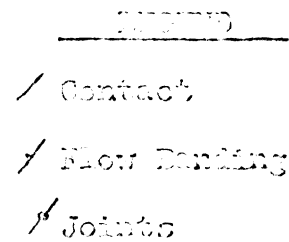 LEGEND
Contact
Flow Banding
Joints